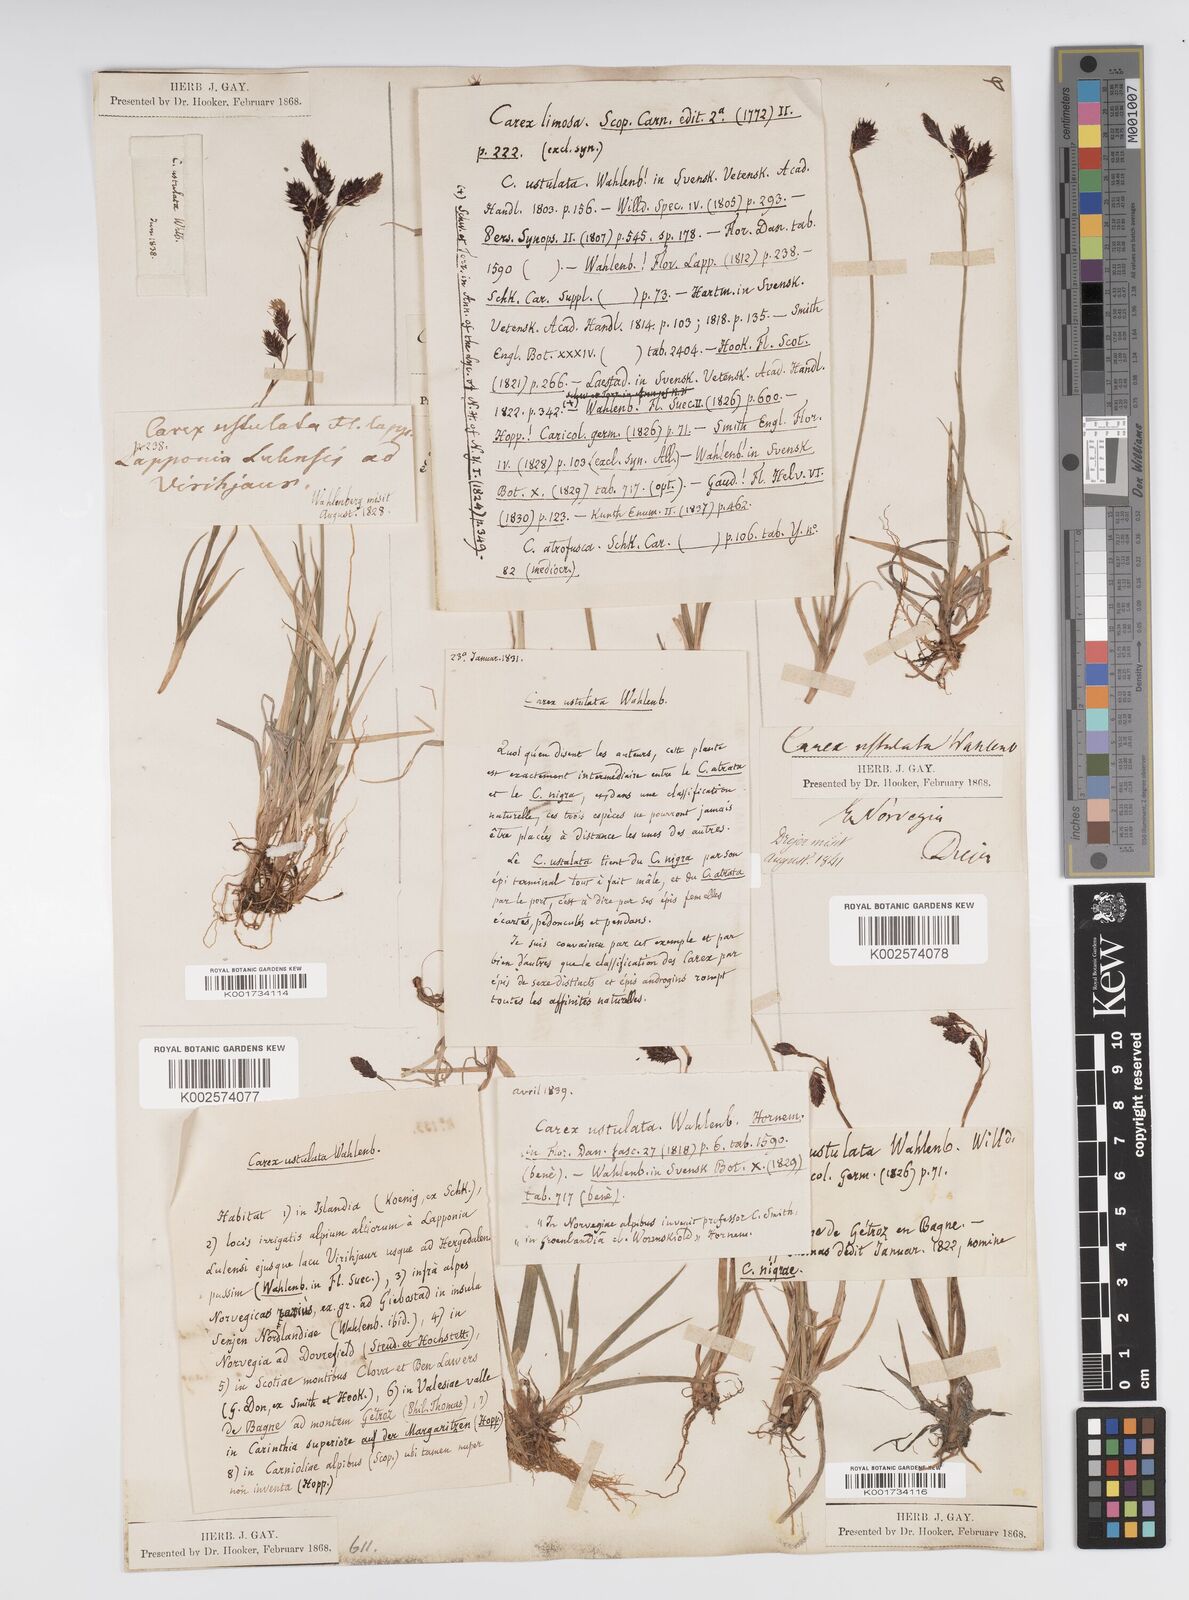 HERB. J. GAY.
Presented by Dr. Hooker, February 1868.
C. ustulata Willd.
Jun. 1838.
Carex ustulata Fl. Lapp.
p. 238.
Lapponia Lulensis ad
Virihjaur.
Wahlenberg misit
August. 1828.
Carex limosa. Scop. Carn. edit. 2ª. (1772) II.
p. 222. (excl. syn.)
C. ustulata. Wahlenb! in Svensk. Vetensk. Acad.
Handl. 1803. p. 156. — Willd. Spec. IV. (1805) p. 293. —
Pers. Synops. II. (1807) p. 545. sp. 178. — Flor. Dan. tab.
1590 ( ). — Wahlenb.! Flor. Lapp. (1812) p. 238. —
Schk. Car. Suppl. ( ) p. 73. — Hartm. in Svensk.
Vetensk. Acad. Handl. 1814. p. 103; 1818. p. 135. — Smith
Engl. Bot. XXXIV. ( ) tab. 2404. — Hook. Fl. Scot.
(1821) p. 266. — Laestad. in Svensk. Vetensk. Acad. Handl.
1822. p. 342. (+) Wahlenb! Fl. Suec. II. (1826) p. 600. —
Hopp.! Caricol. germ. (1826) p. 71. — Smith Engl. Flor.
IV. (1828) p. 103 (excl. syn. All.) — Wahlenb! in Svensk
Bot. X. (1829) tab. 717. (opt.). — Gaud.! Fl. Helv. VI.
(1830) p. 123. — Kunth Enum. II. (1837) p. 462.
C. atrofusca. Schk. Car. ( ) p. 106. tab. Y. nº.
82 (mediocr.)
(+) Schw. et Torr. in Ann. of the Lyc. of N. H. of N. Y. I. (1824) p. 349. —
23ª. Januar. 1831.
Carex ustulata Wahlenb.
Quoi qu'en disent les auteurs, cette plante
est exactement intermediaire entre le C. atrata
et le C. nigra, et, dans une classification
naturelle, ces trois espèces ne pourront jamais
être placées à distance les unes des autres.
Le C. ustulata tient du C. nigra par son
épi terminal tout à fait mâle, et du C. atrata
par le port, c'est à dire par ses épis femelles
écartés, pédonculés et pendans.
Je suis convaincu par cet exemple et par
bien d'autres que la classification des Carex par
épis de sexe distincts et épis androgins rompt
toutes les affinités naturelles.
Carex ustulata Wahlenb
HERB. J. GAY.
Presented by Dr. Hooker, February 1868.
E Norvegia
Drejer misit
august. 1841
Drejer
ROYAL BOTANIC GARDENS KEW
K002574078
ROYAL BOTANIC GARDENS KEW
K001734114
ROYAL BOTANIC GARDENS KEW
K002574077
Carex ustulata Wahlenb.
Habitat 1) in Islandia (Koenig, ex Schk.),
2) locis irrigatis alpium altiorum à Lapponia
Lulensi ejusque lacu Virihjaur usque ad Hergedalen
passim (Wahlenb. in Fl. Suec.), 3) infrà alpes
Norvegicas rarius, ex. gr. ad Giebostad in insula
Senjen Nordlandiae (Wahlenb. ibid.), 4) in
Norvegia ad Dovrefield (Steud. et Hochstett.),
5) in Scotiae montibus Clova et Ben Lawers
(G. Don, ex Smith et Hook.), 6) in Valesiae valle
de Bagne ad montem Gétroz (Phil. Thomas), 7)
in Carinthia superiore auf der Margaritzen (Hopp)
8) in Carnioliae alpibus (Scop.) ubi tamen nuper
non inventa (Hopp.)
avril 1839.
Carex ustulata. Wahlenb. Hornem.
in Flor. Dan. fasc. 27 (1818) p. 6. tab. 1590.
(bene). — Wahlenb. in Svensk Bot. X. (1829)
tab. 717 (bene).
"In Norvegiae alpibus invenit professor C. Smith,
"in Groenlandia cl. Wormskiold" Hornem.
ustulata Wahlenb. Willd.
col. Germ. (1826) p. 71.
de Gétroz en Bagne. —
dedit Januar. 1822, nomine
C. nigrae.
ROYAL BOTANIC GARDENS KEW
K001734116
HERB. J. GAY.
Presented by Dr. Hooker, February 1868.
HERB. J. GAY.
Presented by Dr. Hooker, February 1868.
611.
M001007
centimetres
Don Williams
Density
Kew
Royal Botanic Gardens
copyright reserved
0 1 2 3 4 5 6 7 8 9 10
cm